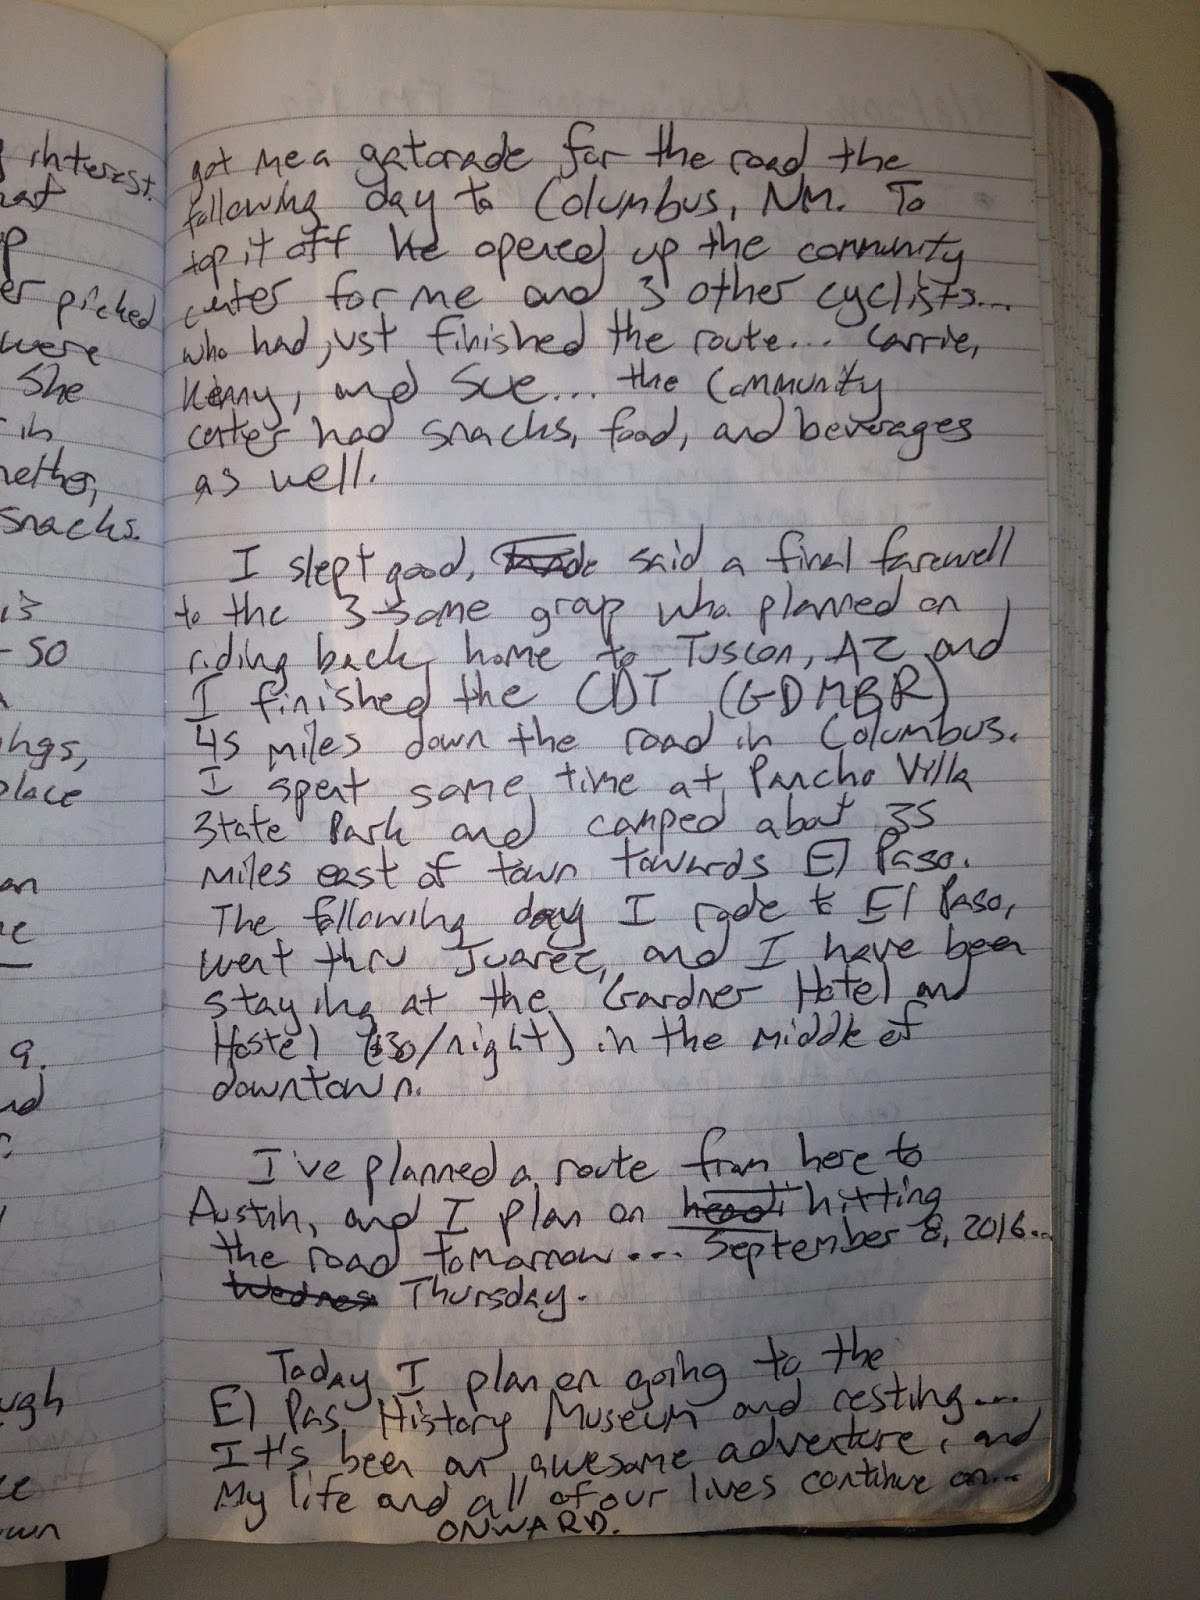 interest.
picked
were
She
in
snacks.
is
so
place
9.
got me a gatorade for the road the
following day to Columbus, NM. To
top it off he opened up the community
center for me and 3 other cyclists...
who had just finished the route... Carrie,
Kenny, and Sue... the community
center had snacks, food, and beverages
as well.
I slept good, said a final farewell
to the 3-some group who planned on
riding back home to Tuscon, AZ and
I finished the CDT (GDMBR)
45 miles down the road in Columbus.
I spent some time at Pancho Villa
State Park and camped about 35
miles east of town towards El Paso.
The following day I rode to El Paso,
went thru Juarez, and I have been
staying at the Gardner Hotel and
Hostel ($30/night) in the middle of
downtown.
I've planned a route from here to
Austin, and I plan on hitting
the road tomorrow... September 8, 2016...
Thursday.
Today I plan on going to the
El Pas History Museum and resting...
It's been an awesome adventure, and
my life and all of our lives continue on...
ONWARD.